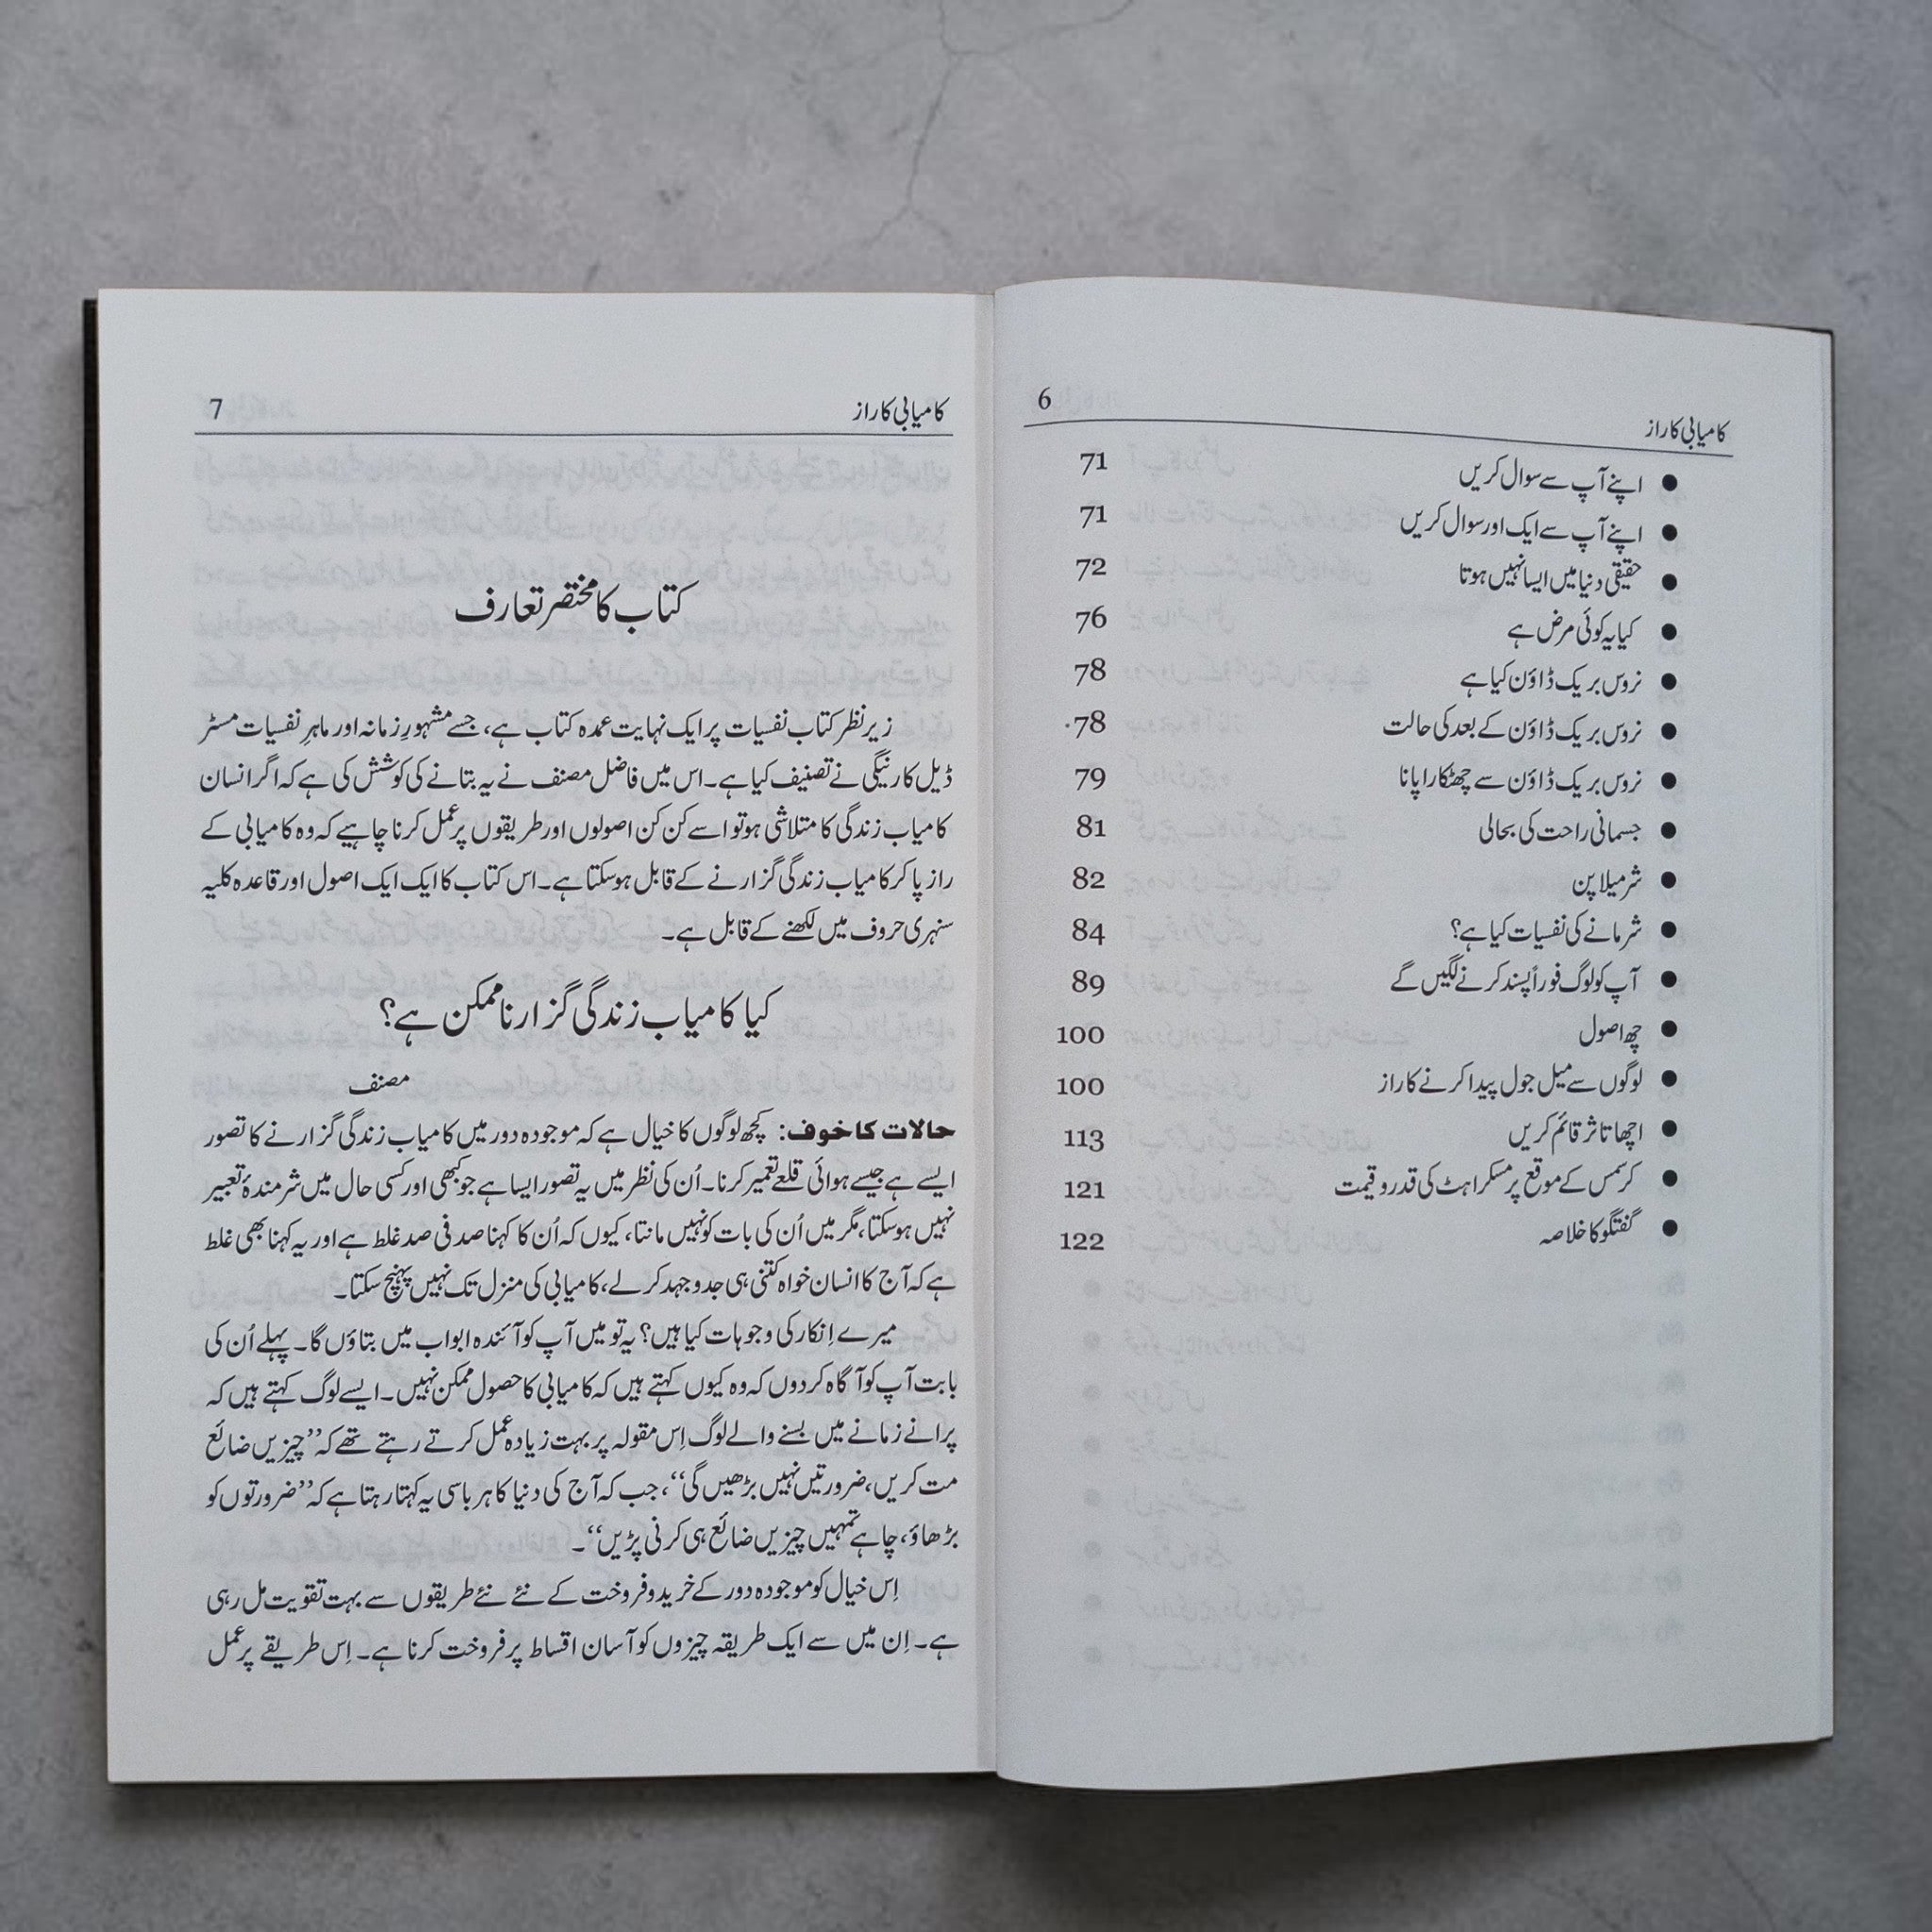 کامیابی کا راز 6
● اپنے آپ سے سوال کریں 71
● اپنے آپ سے ایک اور سوال کریں 71
● حقیقی دنیا میں ایسا نہیں ہوتا 72
● کیا یہ کوئی مرض ہے 76
● نروس بریک ڈاؤن کیا ہے 78
● نروس بریک ڈاؤن کے بعد کی حالت 78
● نروس بریک ڈاؤن سے چھٹکارا پانا 79
● جسمانی راحت کی بحالی 81
● شرمیلا پن 82
● شرمانے کی نفسیات کیا ہے؟ 84
● آپ کو لوگ فوراً پسند کرنے لگیں گے 89
● چھ اصول 100
● لوگوں سے میل جول پیدا کرنے کا راز 100
● اچھا تاثر قائم کریں 113
● کرسمس کے موقع پر مسکراہٹ کی قدر و قیمت 121
● گفتگو کا خلاصہ 122
کامیابی کا راز 7
کتاب کا مختصر تعارف
زیر نظر کتاب نفسیات پر ایک نہایت عمدہ کتاب ہے، جسے مشہورِ زمانہ اور ماہرِ نفسیات مسٹر
ڈیل کارنیگی نے تصنیف کیا ہے۔ اس میں فاضل مصنف نے یہ بتانے کی کوشش کی ہے کہ اگر انسان
کامیاب زندگی کا متلاشی ہو تو اسے کن کن اصولوں اور طریقوں پر عمل کرنا چاہیے کہ وہ کامیابی کے
راز پا کر کامیاب زندگی گزارنے کے قابل ہوسکتا ہے۔ اس کتاب کا ایک ایک اصول اور قاعدہ کلیہ
سنہری حروف میں لکھنے کے قابل ہے۔
کیا کامیاب زندگی گزارنا ممکن ہے؟
مصنف
حالات کا خوف: کچھ لوگوں کا خیال ہے کہ موجودہ دور میں کامیاب زندگی گزارنے کا تصور
ایسے ہے جیسے ہوائی قلعے تعمیر کرنا۔ اُن کی نظر میں یہ تصور ایسا ہے جو کبھی اور کسی حال میں شرمندۂ تعبیر
نہیں ہوسکتا، مگر میں اُن کی بات کو نہیں مانتا، کیوں کہ اُن کا کہنا صد فی صد غلط ہے اور یہ کہنا بھی غلط
ہے کہ آج کا انسان خواہ کتنی ہی جدوجہد کرلے، کامیابی کی منزل تک نہیں پہنچ سکتا۔
میرے اِنکار کی وجوہات کیا ہیں؟ یہ تو میں آپ کو آئندہ ابواب میں بتاؤں گا۔ پہلے اُن کی
بابت آپ کو آگاہ کردوں کہ وہ کیوں کہتے ہیں کہ کامیابی کا حصول ممکن نہیں۔ ایسے لوگ کہتے ہیں کہ
پرانے زمانے میں بسنے والے لوگ اِس مقولہ پر بہت زیادہ عمل کرتے رہتے تھے کہ ”چیزیں ضائع
مت کریں، ضرورتیں نہیں بڑھیں گی“، جب کہ آج کی دنیا کا ہر باسی یہ کہتا رہتا ہے کہ ”ضرورتوں کو
بڑھاؤ، چاہے تمہیں چیزیں ضائع ہی کرنی پڑیں“۔
اِس خیال کو موجودہ دور کے خرید و فروخت کے نئے نئے طریقوں سے بہت تقویت مل رہی
ہے۔ اِن میں سے ایک طریقہ چیزوں کو آسان اقساط پر فروخت کرنا ہے۔ اِس طریقے پر عمل